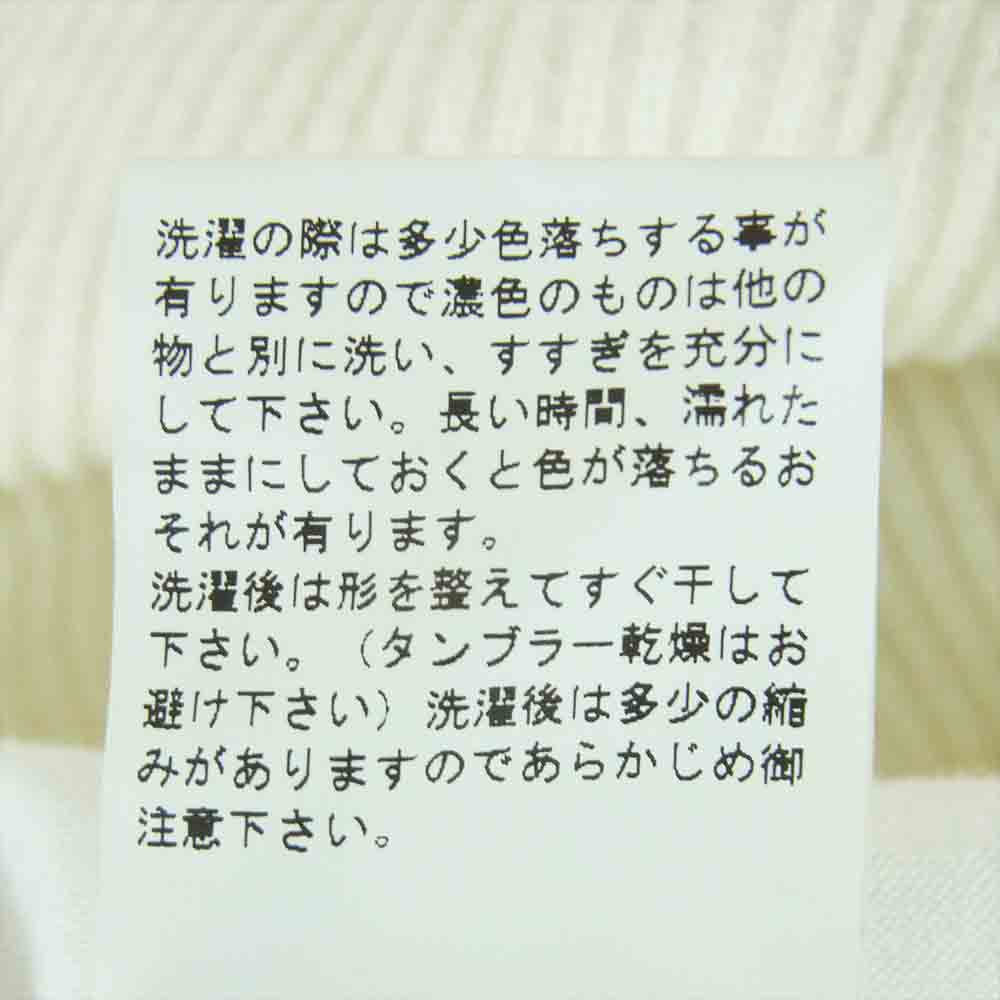 洗濯の際は多少色落ちする事が
有りますので濃色のものは他の
物と別に洗い、すすぎを充分に
して下さい。長い時間、濡れた
ままにしておくと色が落ちるお
それが有ります。
洗濯後は形を整えてすぐ干して
下さい。（タンブラー乾燥はお
避け下さい）洗濯後は多少の縮
みがありますのであらかじめ御
注意下さい。